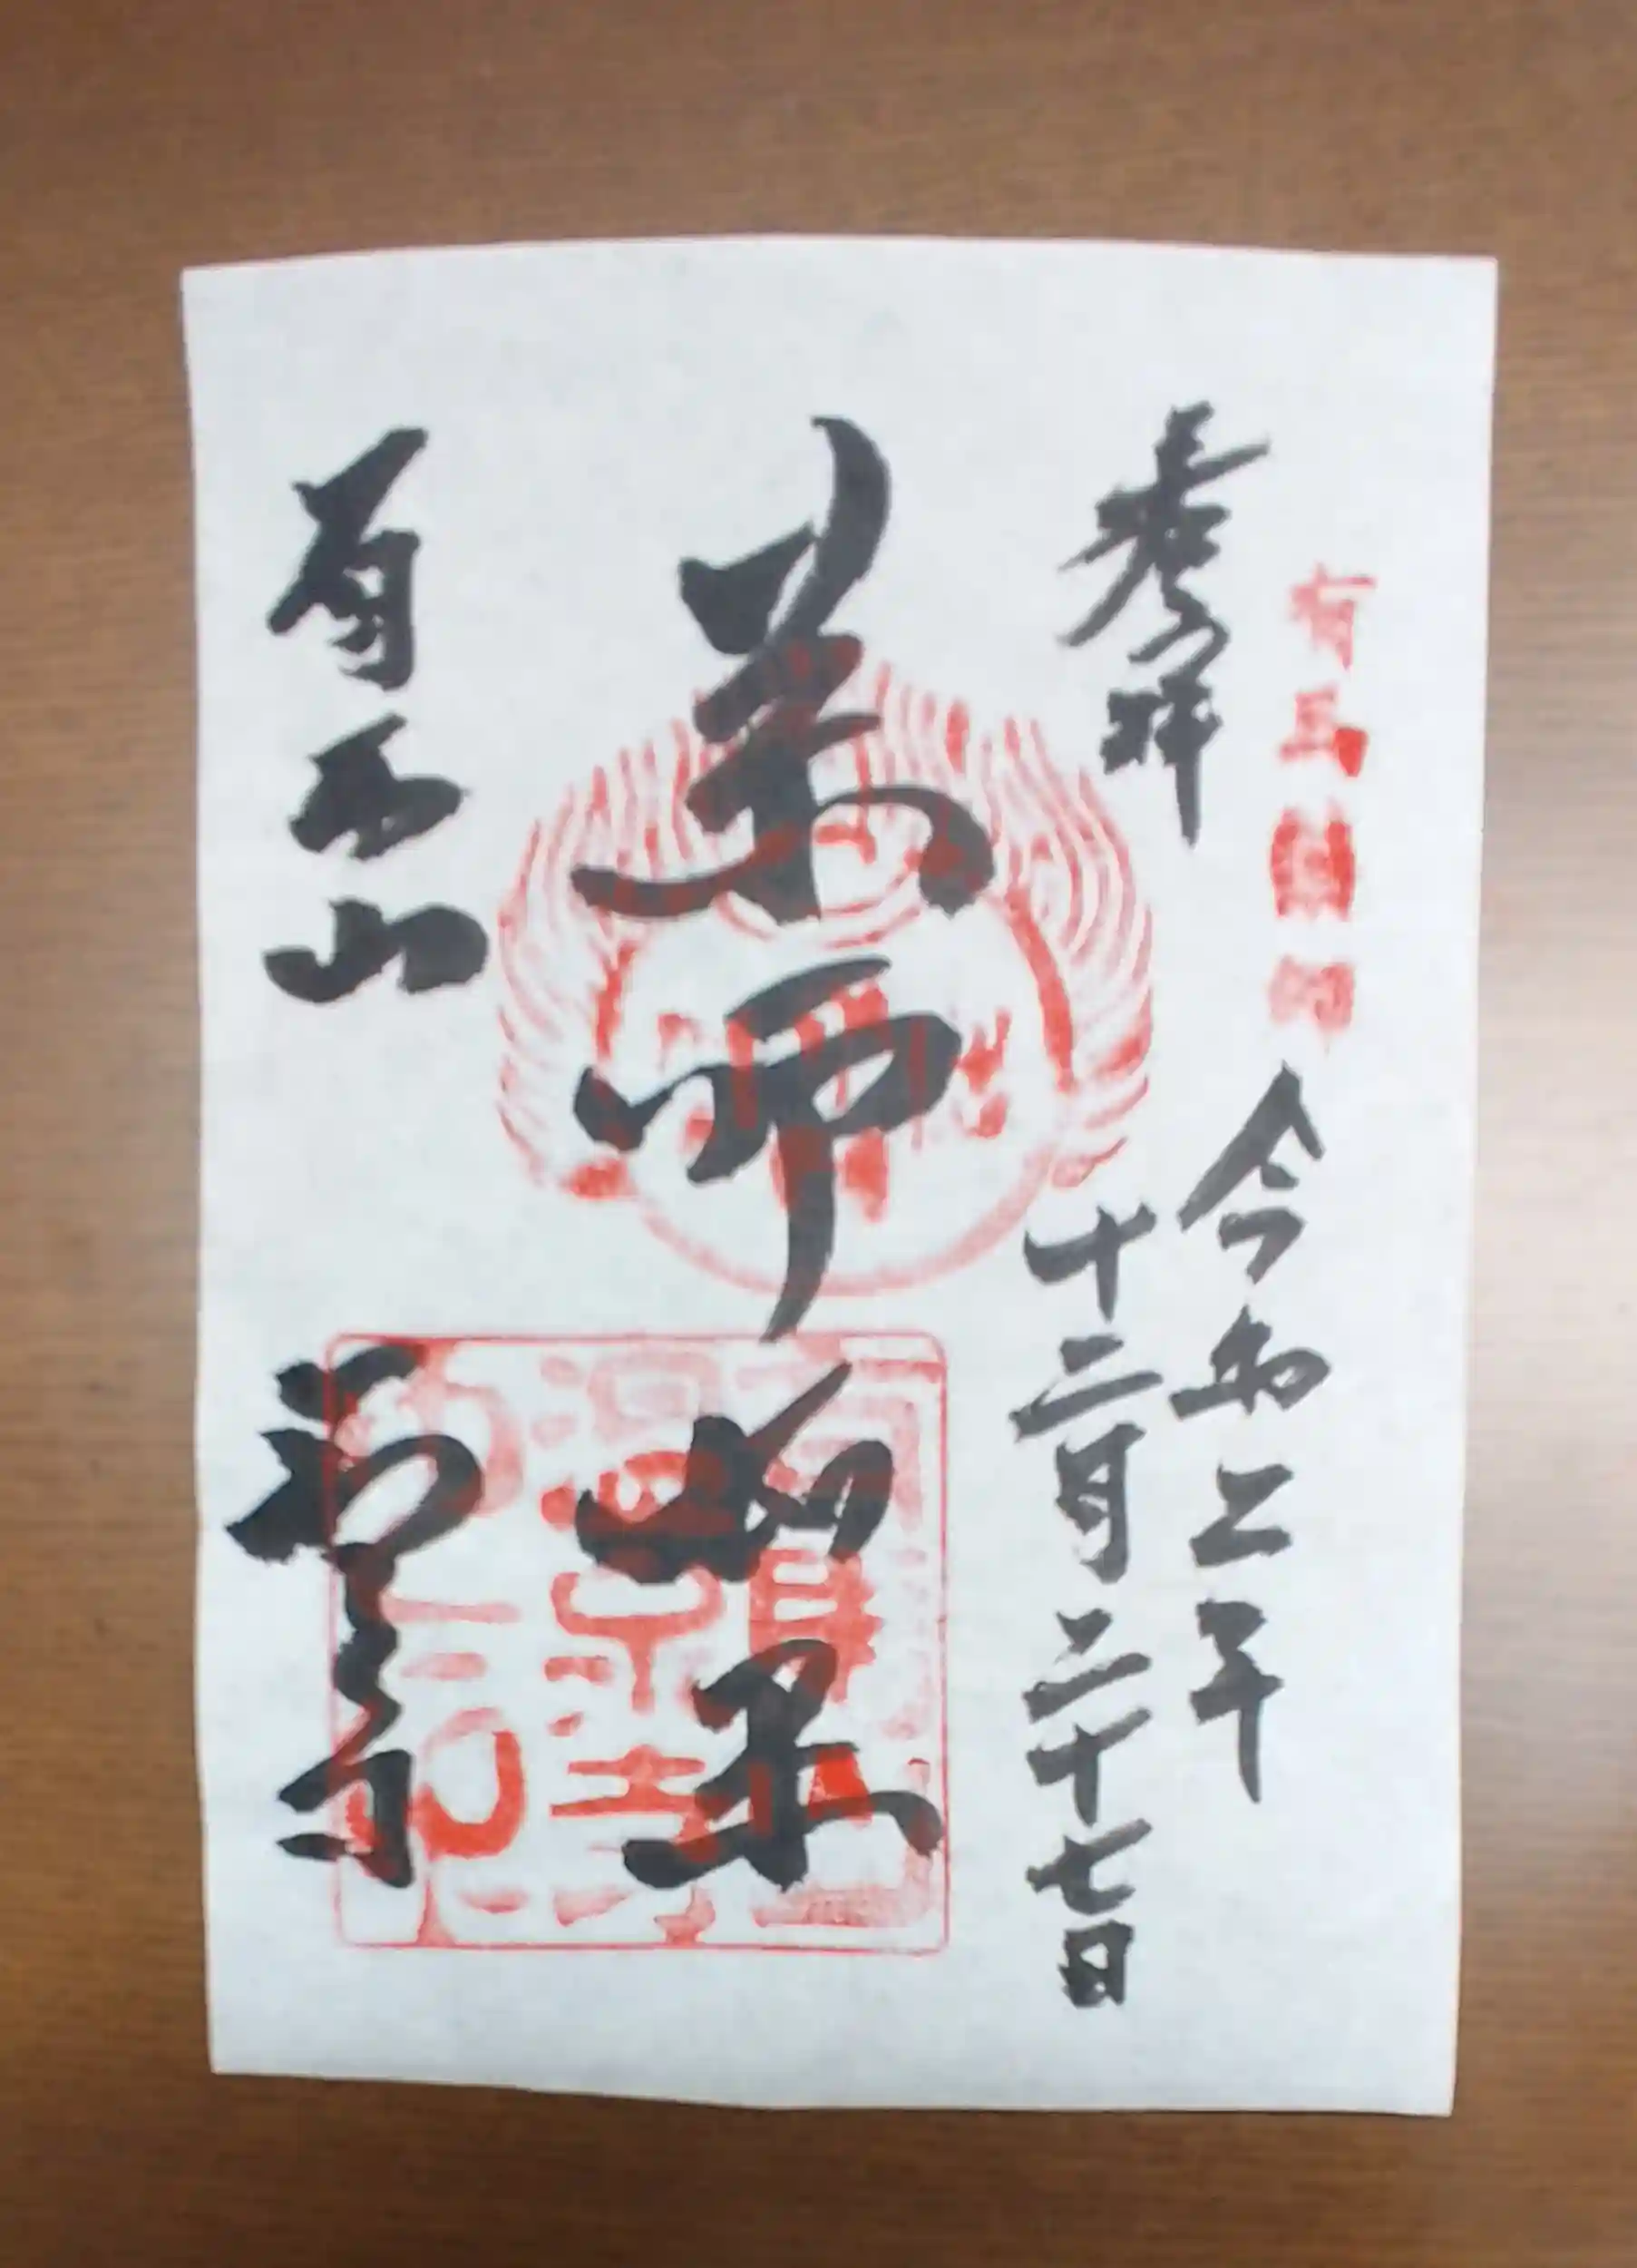 有馬薬師
奉拝
令和二年
十二月二十七日
薬師如来
有馬山
温泉寺